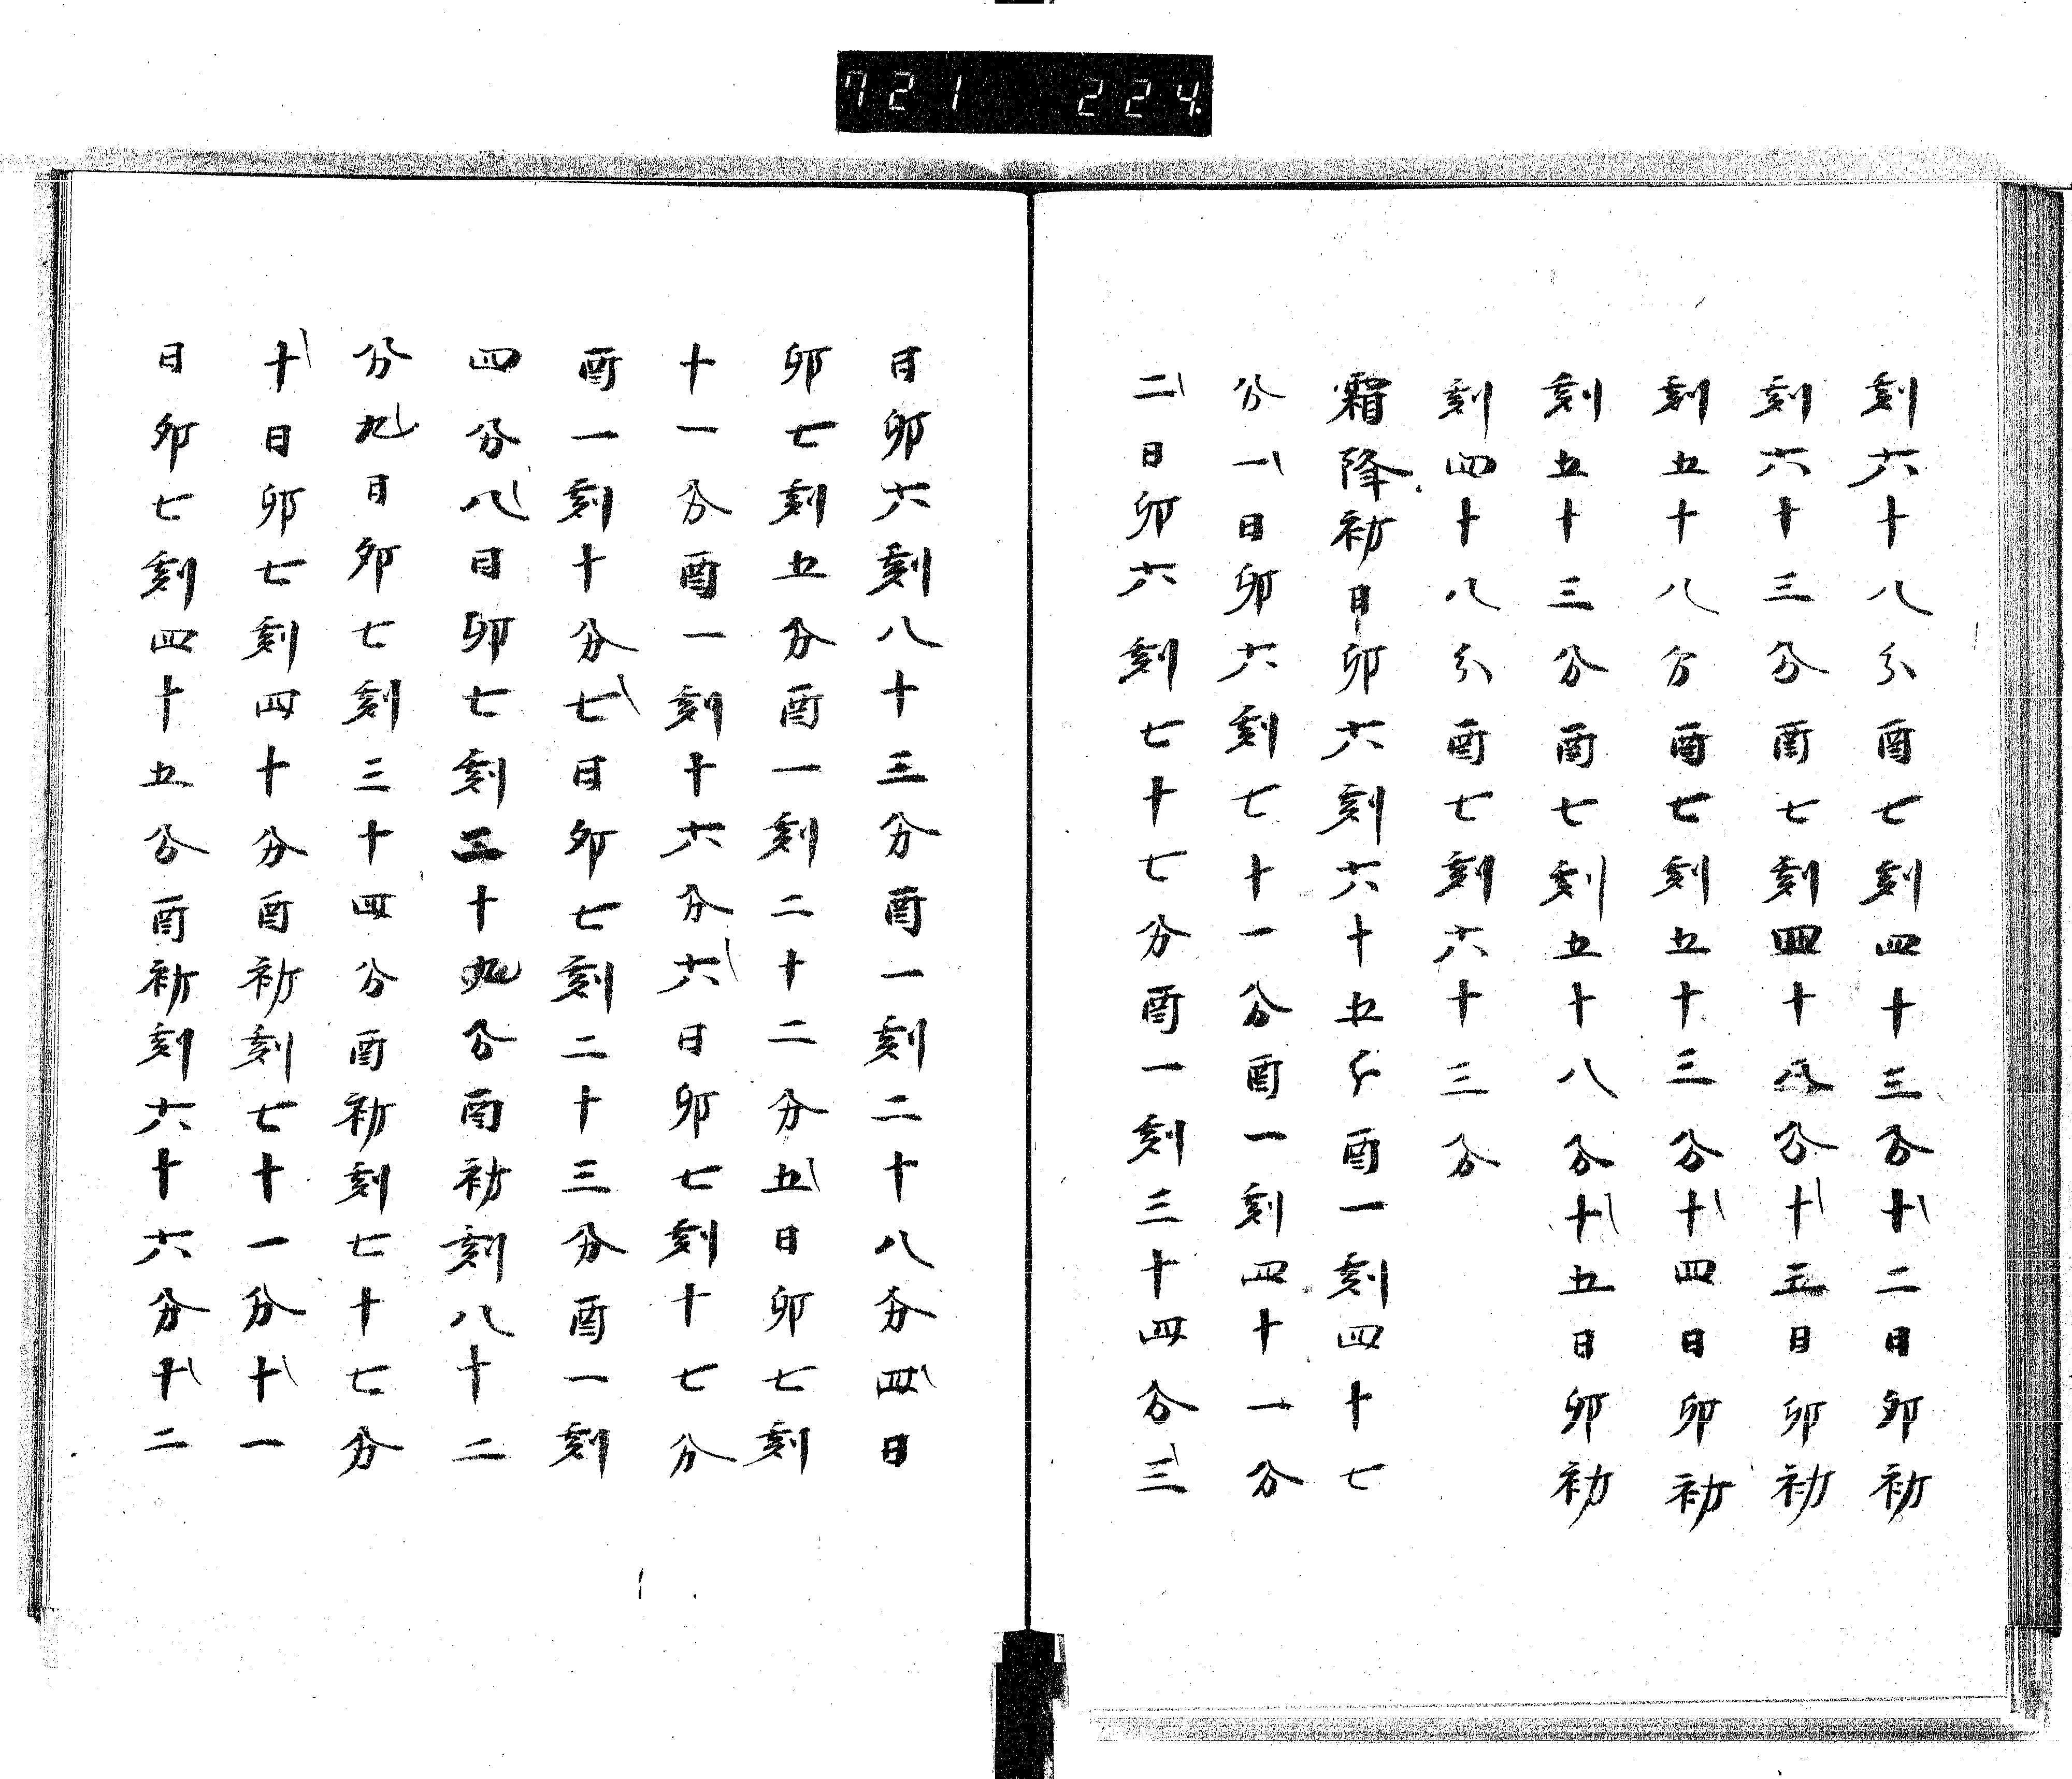 721 224
刻六十八分酉七刻四十三分十二日卯初
刻六十三分酉七刻四十八分十三日卯初
刻五十八分酉七刻五十三分十四日卯初
刻五十三分酉七刻五十八分十五日卯初
刻四十八分酉七刻六十三分
霜降初日卯六刻六十五分酉一刻四十七
分一日卯六刻七十一分酉一刻四十一分
二日卯六刻七十七分酉一刻三十四分三
日卯六刻八十三分酉一刻二十八分四日
卯七刻五分酉一刻二十二分五日卯七刻
十一分酉一刻十六分六日卯七刻十七分
酉一刻十分七日卯七刻二十三分酉一刻
四分八日卯七刻二十九分酉初刻八十二
分九日卯七刻三十四分酉初刻七十七分
十日卯七刻四十分酉初刻七十一分十一
日卯七刻四十五分酉初刻六十六分十二